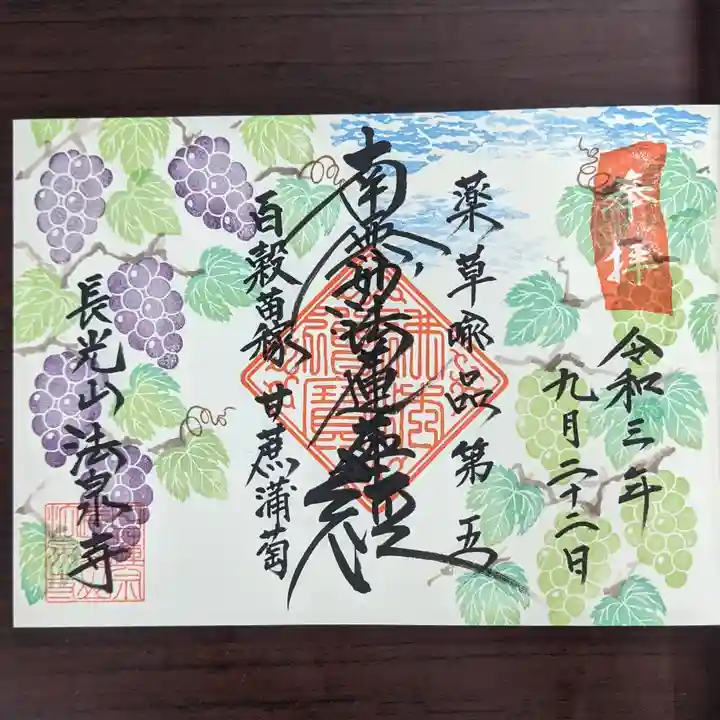 奉拝
令和三年
九月二十二日
薬草喩品第五
南無妙法蓮華経
百穀苗稼甘蔗蒲萄
長光山法泉寺